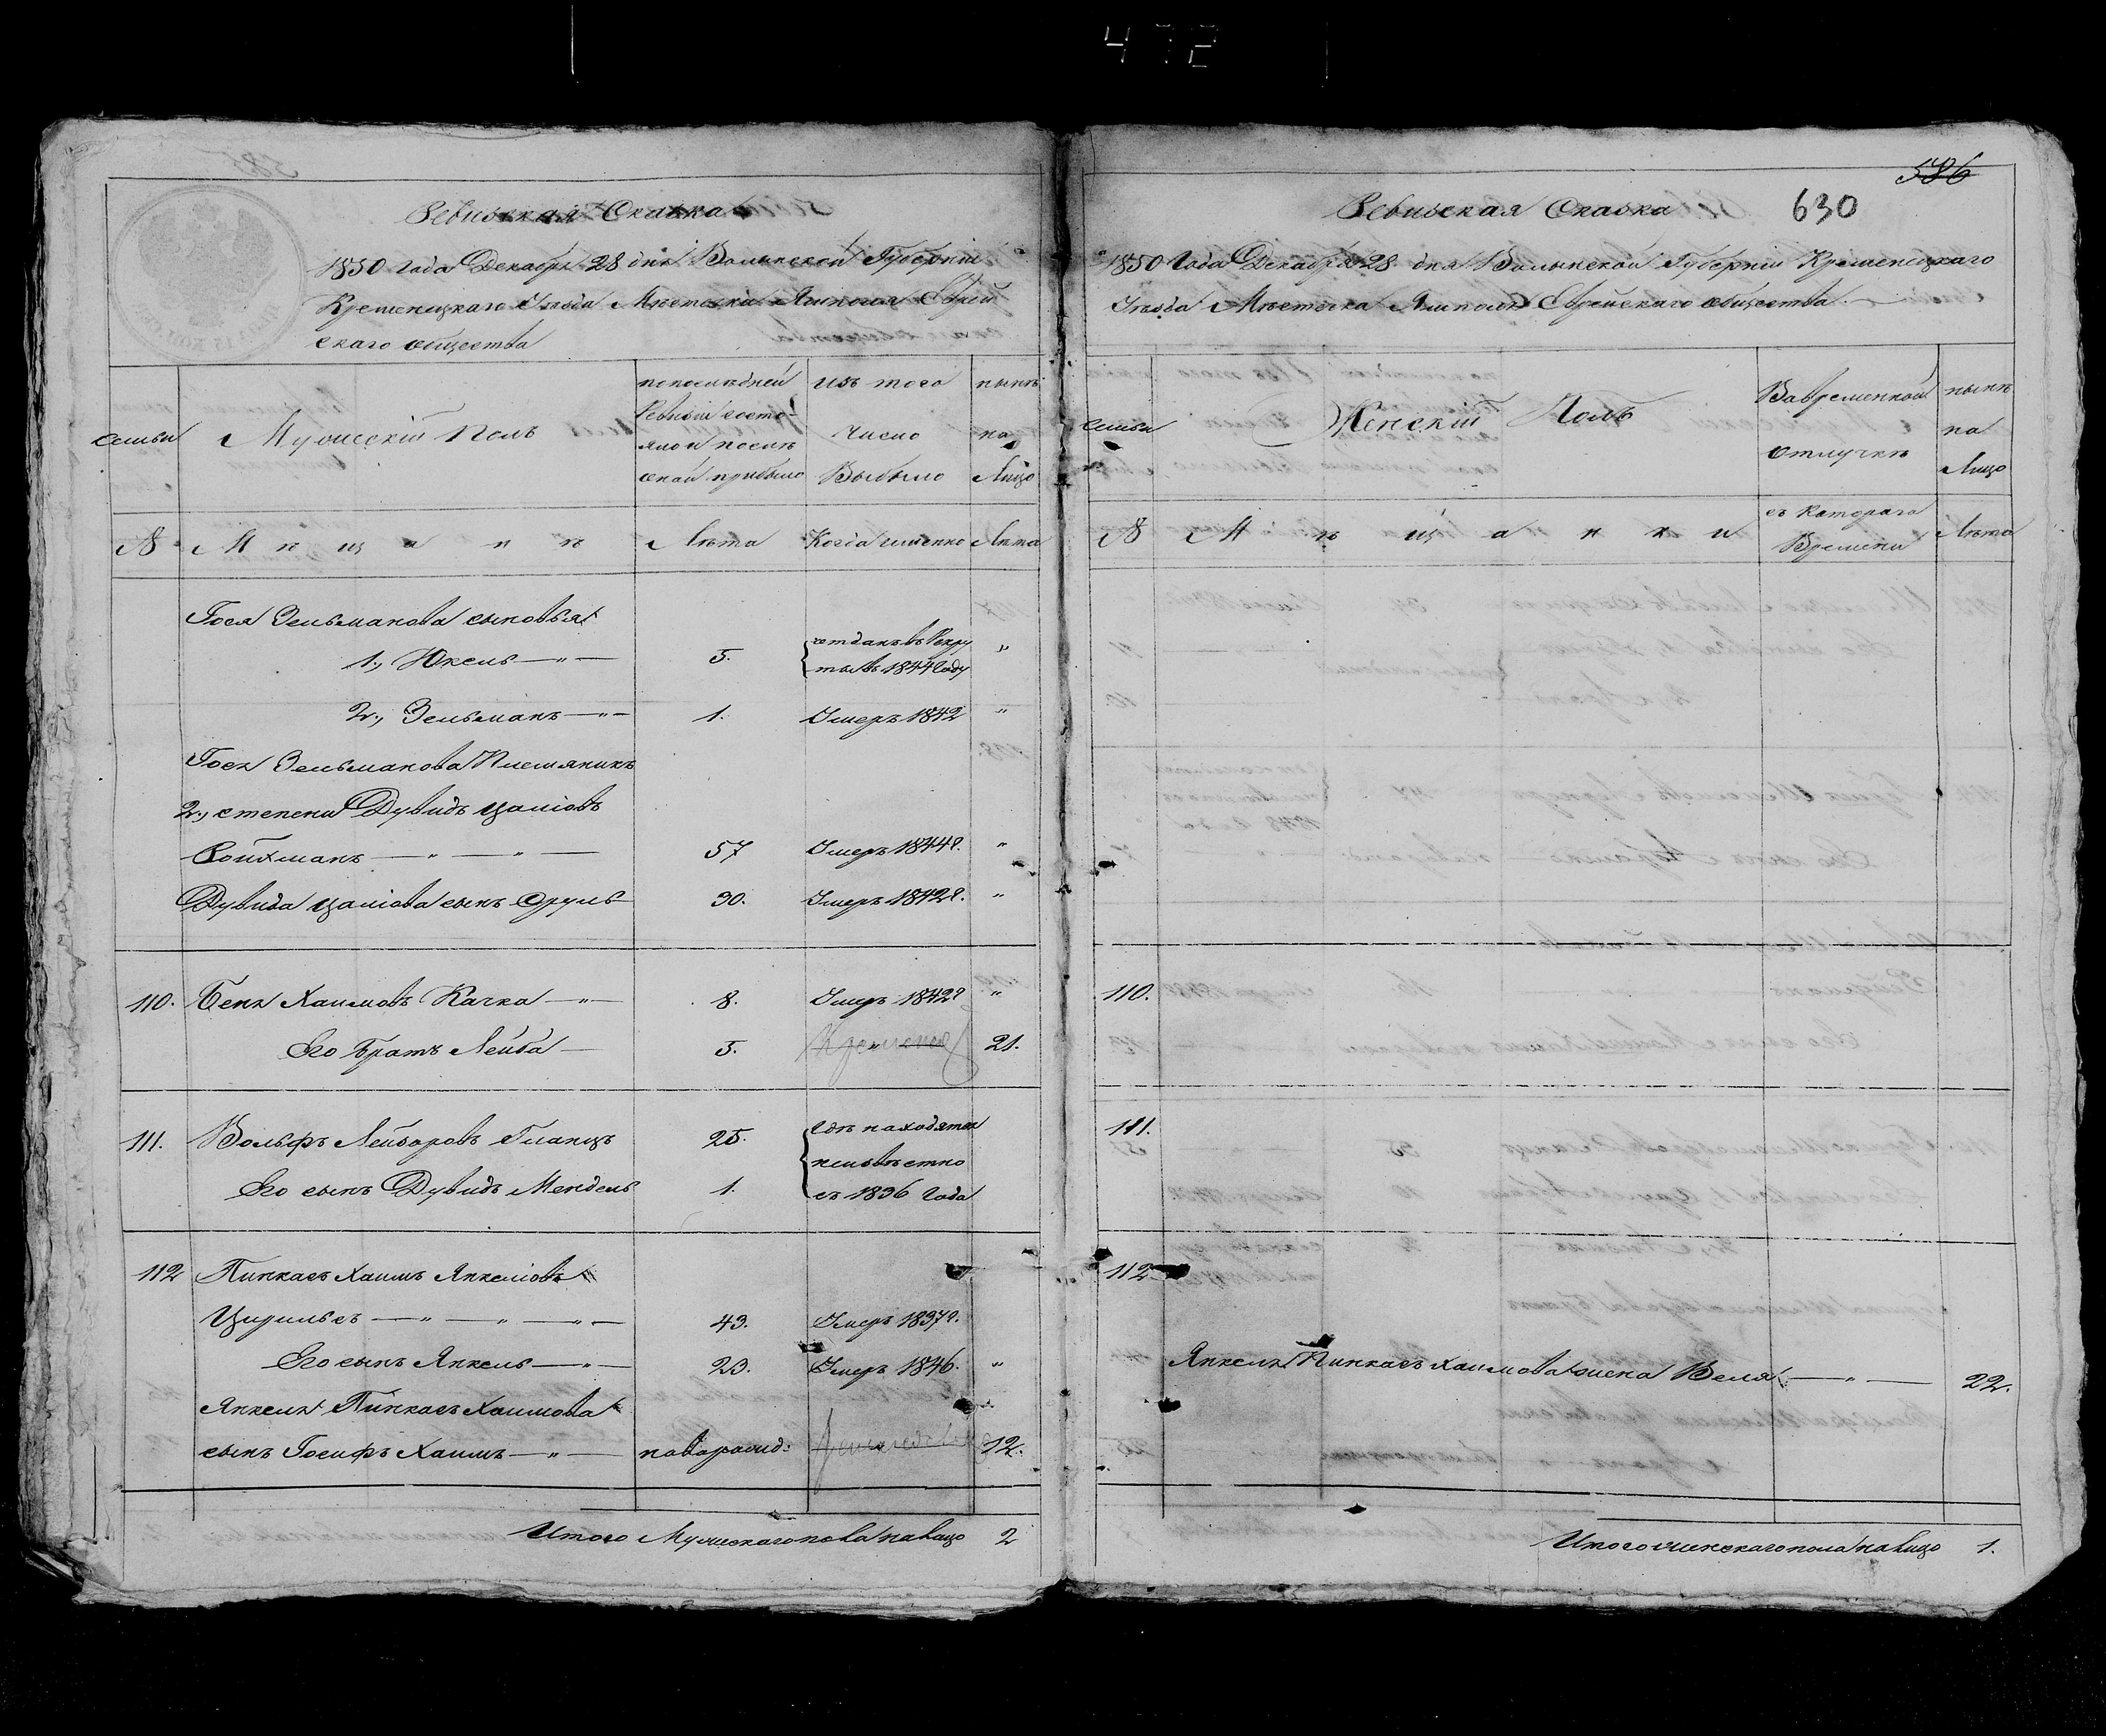 472
586
630
Ревизская Сказка
1850 года Декабря 28 дня Волынской Губерніи
Кременецкаго Уезда Местечка Ямполя Еврей
скаго общества
семьи
Мужескій Полъ
по последней
Ревизіи состо-
яло и после
оной прибыло
изъ того
число
Выбыло
ныне
на
Лицо
№
М ѣ щ а н ѣ
Лѣта
Когда именно
Лѣта
Госа Зельманова сыновья
1., Юкель — " —
5.
отданъ въ Рекру
ты въ 1844 году
"
2., Зельманъ — " —
1.
Умеръ 1842
"
Госа Зельманова Племяникъ
2., степени Дувидъ Цаліовъ
Ройхманъ — " — " —
57
Умеръ 1844 г.
"
Дувида Цаліова сынъ Сруль
30.
Умеръ 1842 г.
"
110.
Бенъ Хаимовъ Качка — " —
8.
Умеръ 1842 г
"
Его братъ Лейба —
5.
"
21.
111.
Вольфъ Лейборовъ Гланцъ
25.
где находятся
неизвѣстно
съ 1836 года
Его сынъ Дувидъ Мендель
1.
112
Пинкасъ Хаимъ Янкеліовъ
Цирульсъ — " — " — " —
43.
Умеръ 1837 г.
Его сынъ Янкель — " —
23.
Умеръ 1846.
"
Янкеля Пинкасъ Хаимова
сынъ Госифъ Хаимъ — " —
наворожд:
12.
Итого Мужескаго пола на лицо 2
Ревизская Сказка
1850 года Декабря 28 дня Волынской Губерніи Кременецкаго
Уезда Местечка Ямполя Еврейскаго общества
семьи
Женскій Полъ
Вавременной
отлучке
ныне
на
Лицо
№
М ѣ щ а н к и
съ катораго
Времени
Лѣта
110.
111.
112
Янкеля Пинкасъ Хаимова жена Веля — " —
22.
Итого женскаго пола на лицо 1.